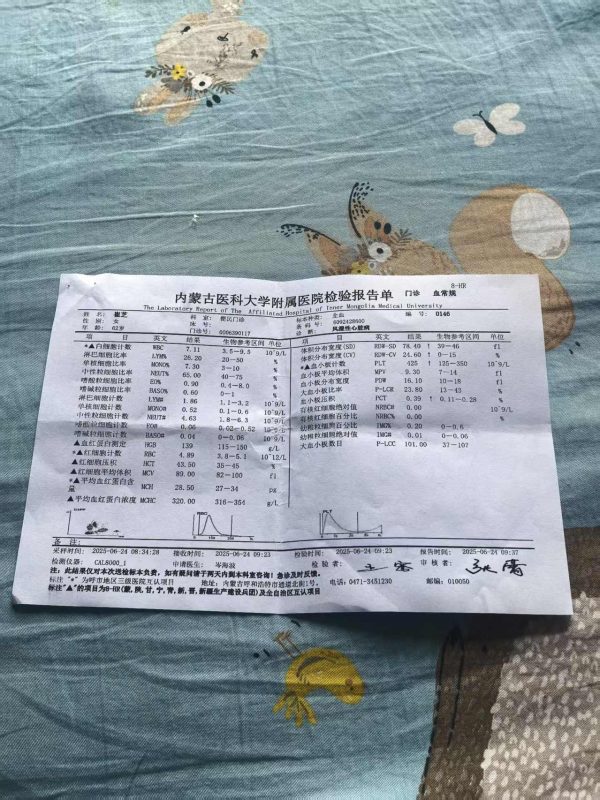 8-HR
内蒙古医科大学附属医院检验报告单 门诊 血常规
The Laboratory Report of The Affiliated Hospital of Inner Mongolia Medical University
姓 名: 崔芝 科 室: 便民门诊 标本种类: 全血 编 号: 0146
性 别: 女 床 号: 条 码 号: 6092428600
年 龄: 62岁 门诊号: 0006390117 诊 断: 风湿性心脏病
项 目 英文 结果 生物参考区间 单位 项 目 英文 结果 生物参考区间 单位
*▲白细胞计数 WBC 7.11 3.5-9.5 10^9/L
淋巴细胞比率 LYM% 26.20 20-50 %
单核细胞比率 MONO% 7.30 3-10 %
中性粒细胞比率 NEUT% 65.00 40-75 %
嗜酸粒细胞比率 EO% 0.90 0.4-8.0 %
嗜碱粒细胞比率 BASO% 0.60 0-1 %
淋巴细胞计数 LYM# 1.86 1.1-3.2 10^9/L
单核细胞计数 MONO# 0.52 0.1-0.6 10^9/L
中性粒细胞计数 NEUT# 4.63 1.8-6.3 10^9/L
嗜酸粒细胞计数 EO# 0.06 0.02-0.52 10^9/L
嗜碱粒细胞计数 BASO# 0.04 0-0.06 10^9/L
▲血红蛋白测定 HGB 139 115-150 g/L
*▲红细胞计数 RBC 4.89 3.8-5.1 10^12/L
▲红细胞压积 HCT 43.50 35-45 %
▲红细胞平均体积 MCV 89.00 82-100 fl
▲平均血红蛋白含量 MCH 28.50 27-34 pg
▲平均血红蛋白浓度 MCHC 320.00 316-354 g/L
体积分布宽度(SD) RDW-SD 78.40 ↑ 39-46 fl
体积分布宽度(CV) RDW-CV 24.60 ↑ 0-15 %
*▲血小板计数 PLT 425 ↑ 125-350 10^9/L
血小板平均体积 MPV 9.30 7-14 fl
血小板分布宽度 PDW 16.10 10-18 fl
大血小板比率 P-LCR 23.80 13-43 %
血小板压积 PCT 0.39 ↑ 0.11-0.28 %
有核红细胞绝对值 NRBC# 0.00 10^9/L
有核红细胞百分比 NRBC% 0.00 %
幼稚粒细胞百分比 IMG% 0.20 0-0.6 %
幼稚粒细胞绝对值 IMG# 0.01 0-0.06
大血小板数目 P-LCC 101.00 37-102
RBC
PLT
备 注:
采样时间: 2025-06-24 08:34:28 接收时间: 2025-06-24 09:23 检验时间: 2025-06-24 09:23 报告时间: 2025-06-24 09:37
检测仪器: CAL8000_1 申请医生: 岑海波 检 验 者: 审 核 者:
注: 此结果仅对本次送检标本负责, 如有疑问请于两天内到本科室咨询! 急诊及时反馈。
标注 "*" 为呼市地区三级医院互认项目 地址: 内蒙古呼和浩特市通道北街1号。 电话: 0471-3451230 邮编: 010050
标注"▲"的项目为8-HR(蒙, 陕, 甘, 宁, 青, 新, 晋, 新疆生产建设兵团)及全自治区互认项目